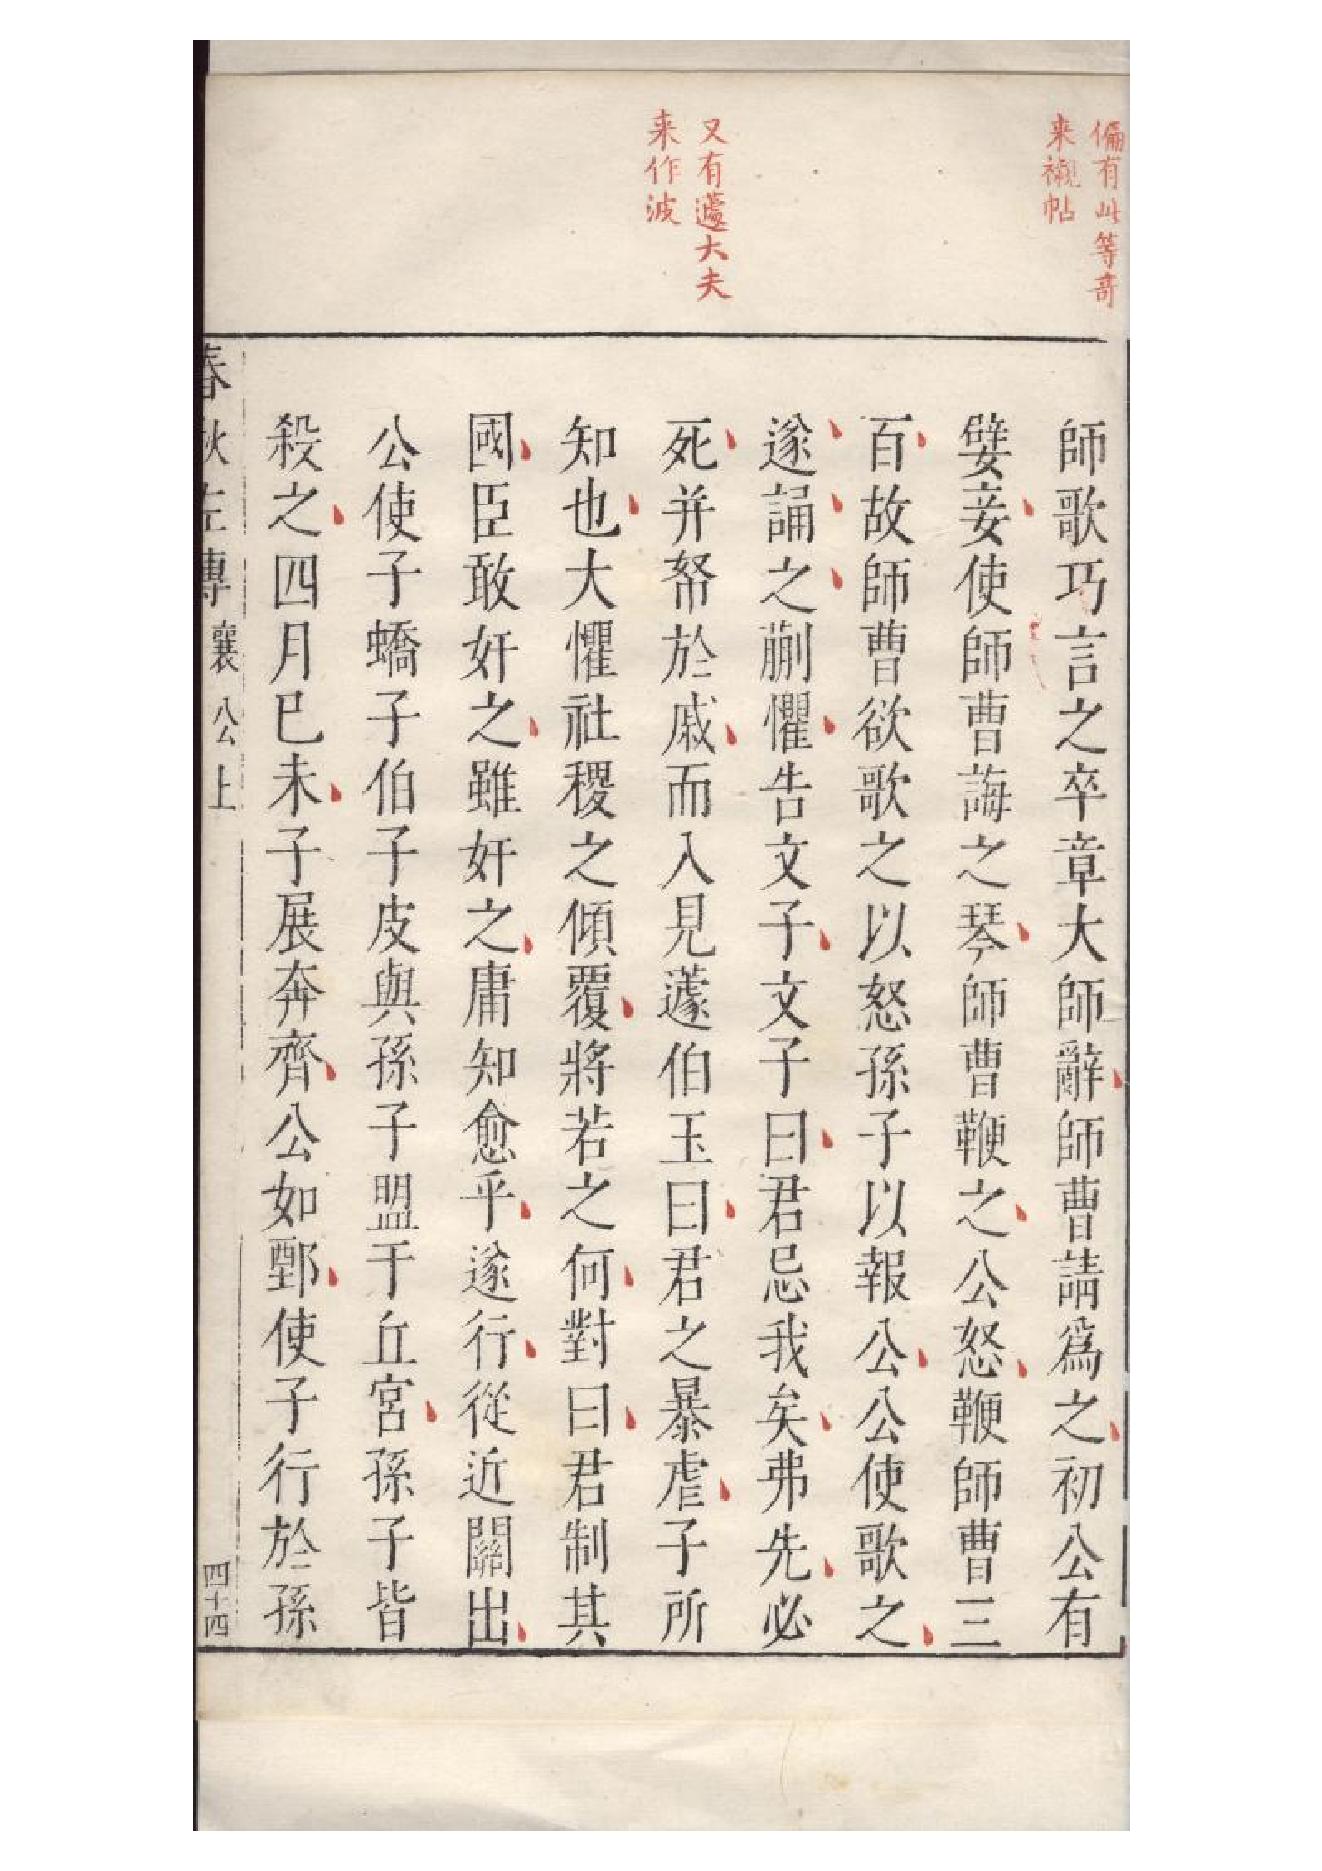 偏有此等奇
来襯帖
又有蘧大夫
来作波
師歌巧言之卒章大師辭師曹請爲之初公有
嬖妾使師曹誨之琴師曹鞭之公怒鞭師曹三
百故師曹欲歌之以怒孫子以報公公使歌之
遂誦之蒯懼告文子文子曰君忌我矣弗先必
死并帑於戚而入見蘧伯玉曰君之暴虐子所
知也大懼社稷之傾覆將若之何對曰君制其
國臣敢奸之雖奸之庸知愈乎遂行從近關出
公使子蟜子伯子皮與孫子盟于丘宮孫子皆
殺之四月已未子展奔齊公如鄄使子行於孫
春秋左傳 襄公上 四十四